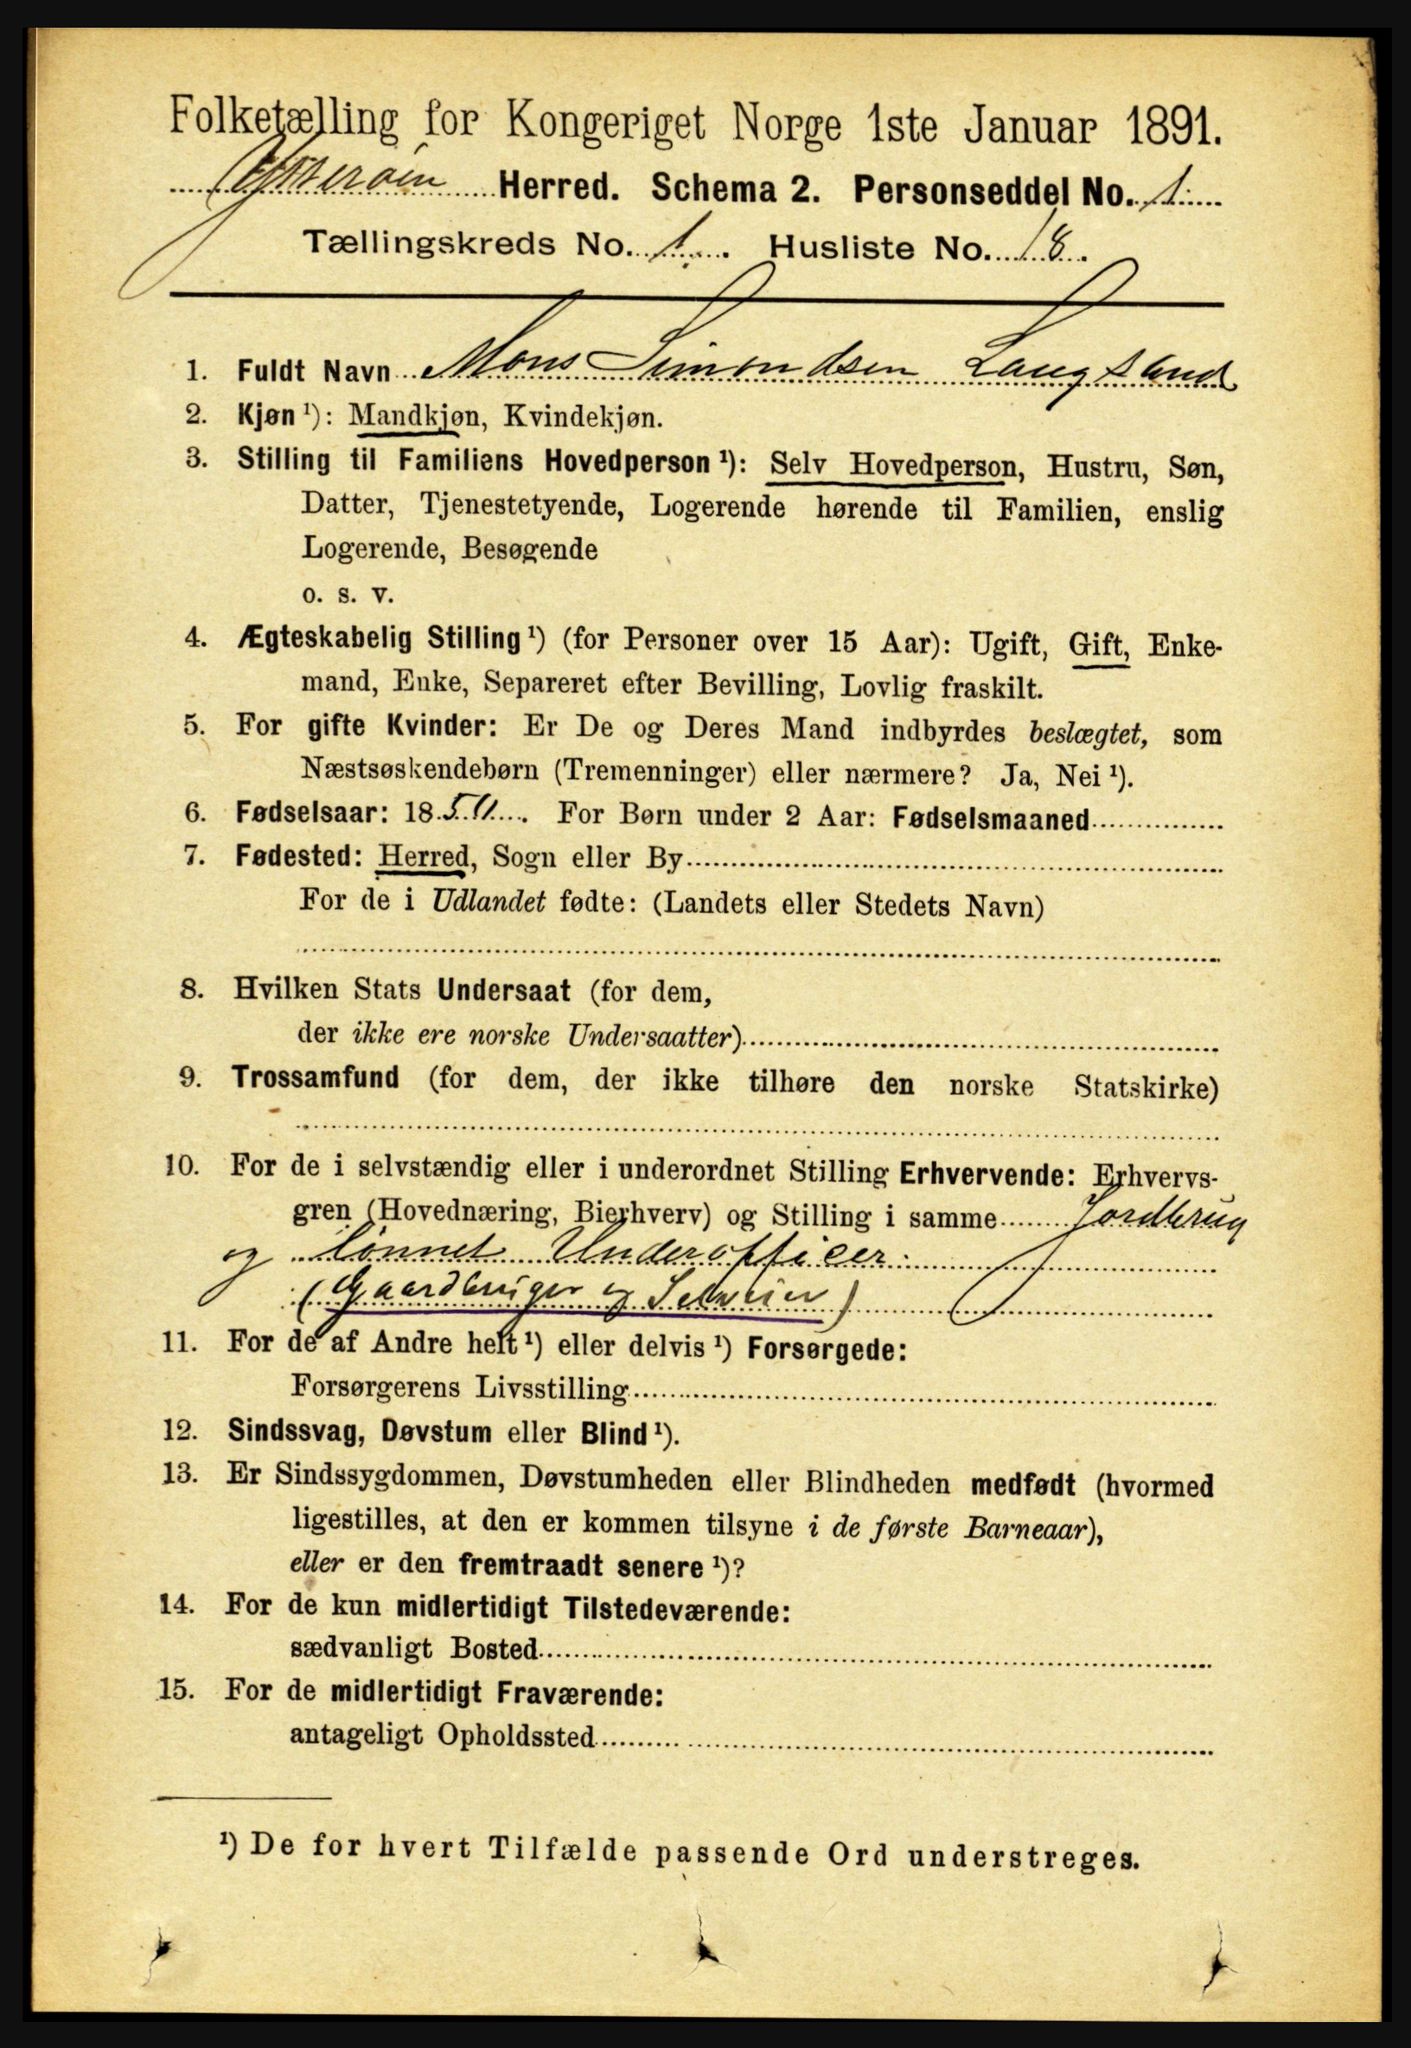 Folketælling for Kongeriget Norge 1ste Januar 1891.
Herred. Schema 2. Personseddel No. 1
Tællingskreds No. 1. Husliste No. 18.
1. Fuldt Navn Mons Simondsen Laugsand
2. Kjøn ¹): Mandkjøn, Kvindekjøn.
3. Stilling til Familiens Hovedperson ¹): Selv Hovedperson, Hustru, Søn,
Datter, Tjenestetyende, Logerende hørende til Familien, enslig
Logerende, Besøgende
o. s. v.
4. Ægteskabelig Stilling ¹) (for Personer over 15 Aar): Ugift, Gift, Enke-
mand, Enke, Separeret efter Bevilling, Lovlig fraskilt.
5. For gifte Kvinder: Er De og Deres Mand indbyrdes beslægtet, som
Næstsøskendebørn (Tremenninger) eller nærmere? Ja, Nei ¹).
6. Fødselsaar: 18 . For Børn under 2 Aar: Fødselsmaaned
7. Fødested: Herred, Sogn eller By
For de i Udlandet fødte: (Landets eller Stedets Navn)
8. Hvilken Stats Undersaat (for dem,
der ikke ere norske Undersaatter)
9. Trossamfund (for dem, der ikke tilhøre den norske Statskirke)
10. For de i selvstændig eller i underordnet Stilling Erhvervende: Erhvervs-
gren (Hovednæring, Bierhverv) og Stilling i samme Jordbrug
og lønnet Underofficer.
(Gaardbruger og Selveier)
11. For de af Andre helt ¹) eller delvis ¹) Forsørgede:
Forsørgerens Livsstilling
12. Sindssvag, Døvstum eller Blind ¹).
13. Er Sindssygdommen, Døvstumheden eller Blindheden medfødt (hvormed
ligestilles, at den er kommen tilsyne i de første Barneaar),
eller er den fremtraadt senere ¹)?
14. For de kun midlertidigt Tilstedeværende:
sædvanligt Bosted
15. For de midlertidigt Fraværende:
antageligt Opholdssted
¹) De for hvert Tilfælde passende Ord understreges.